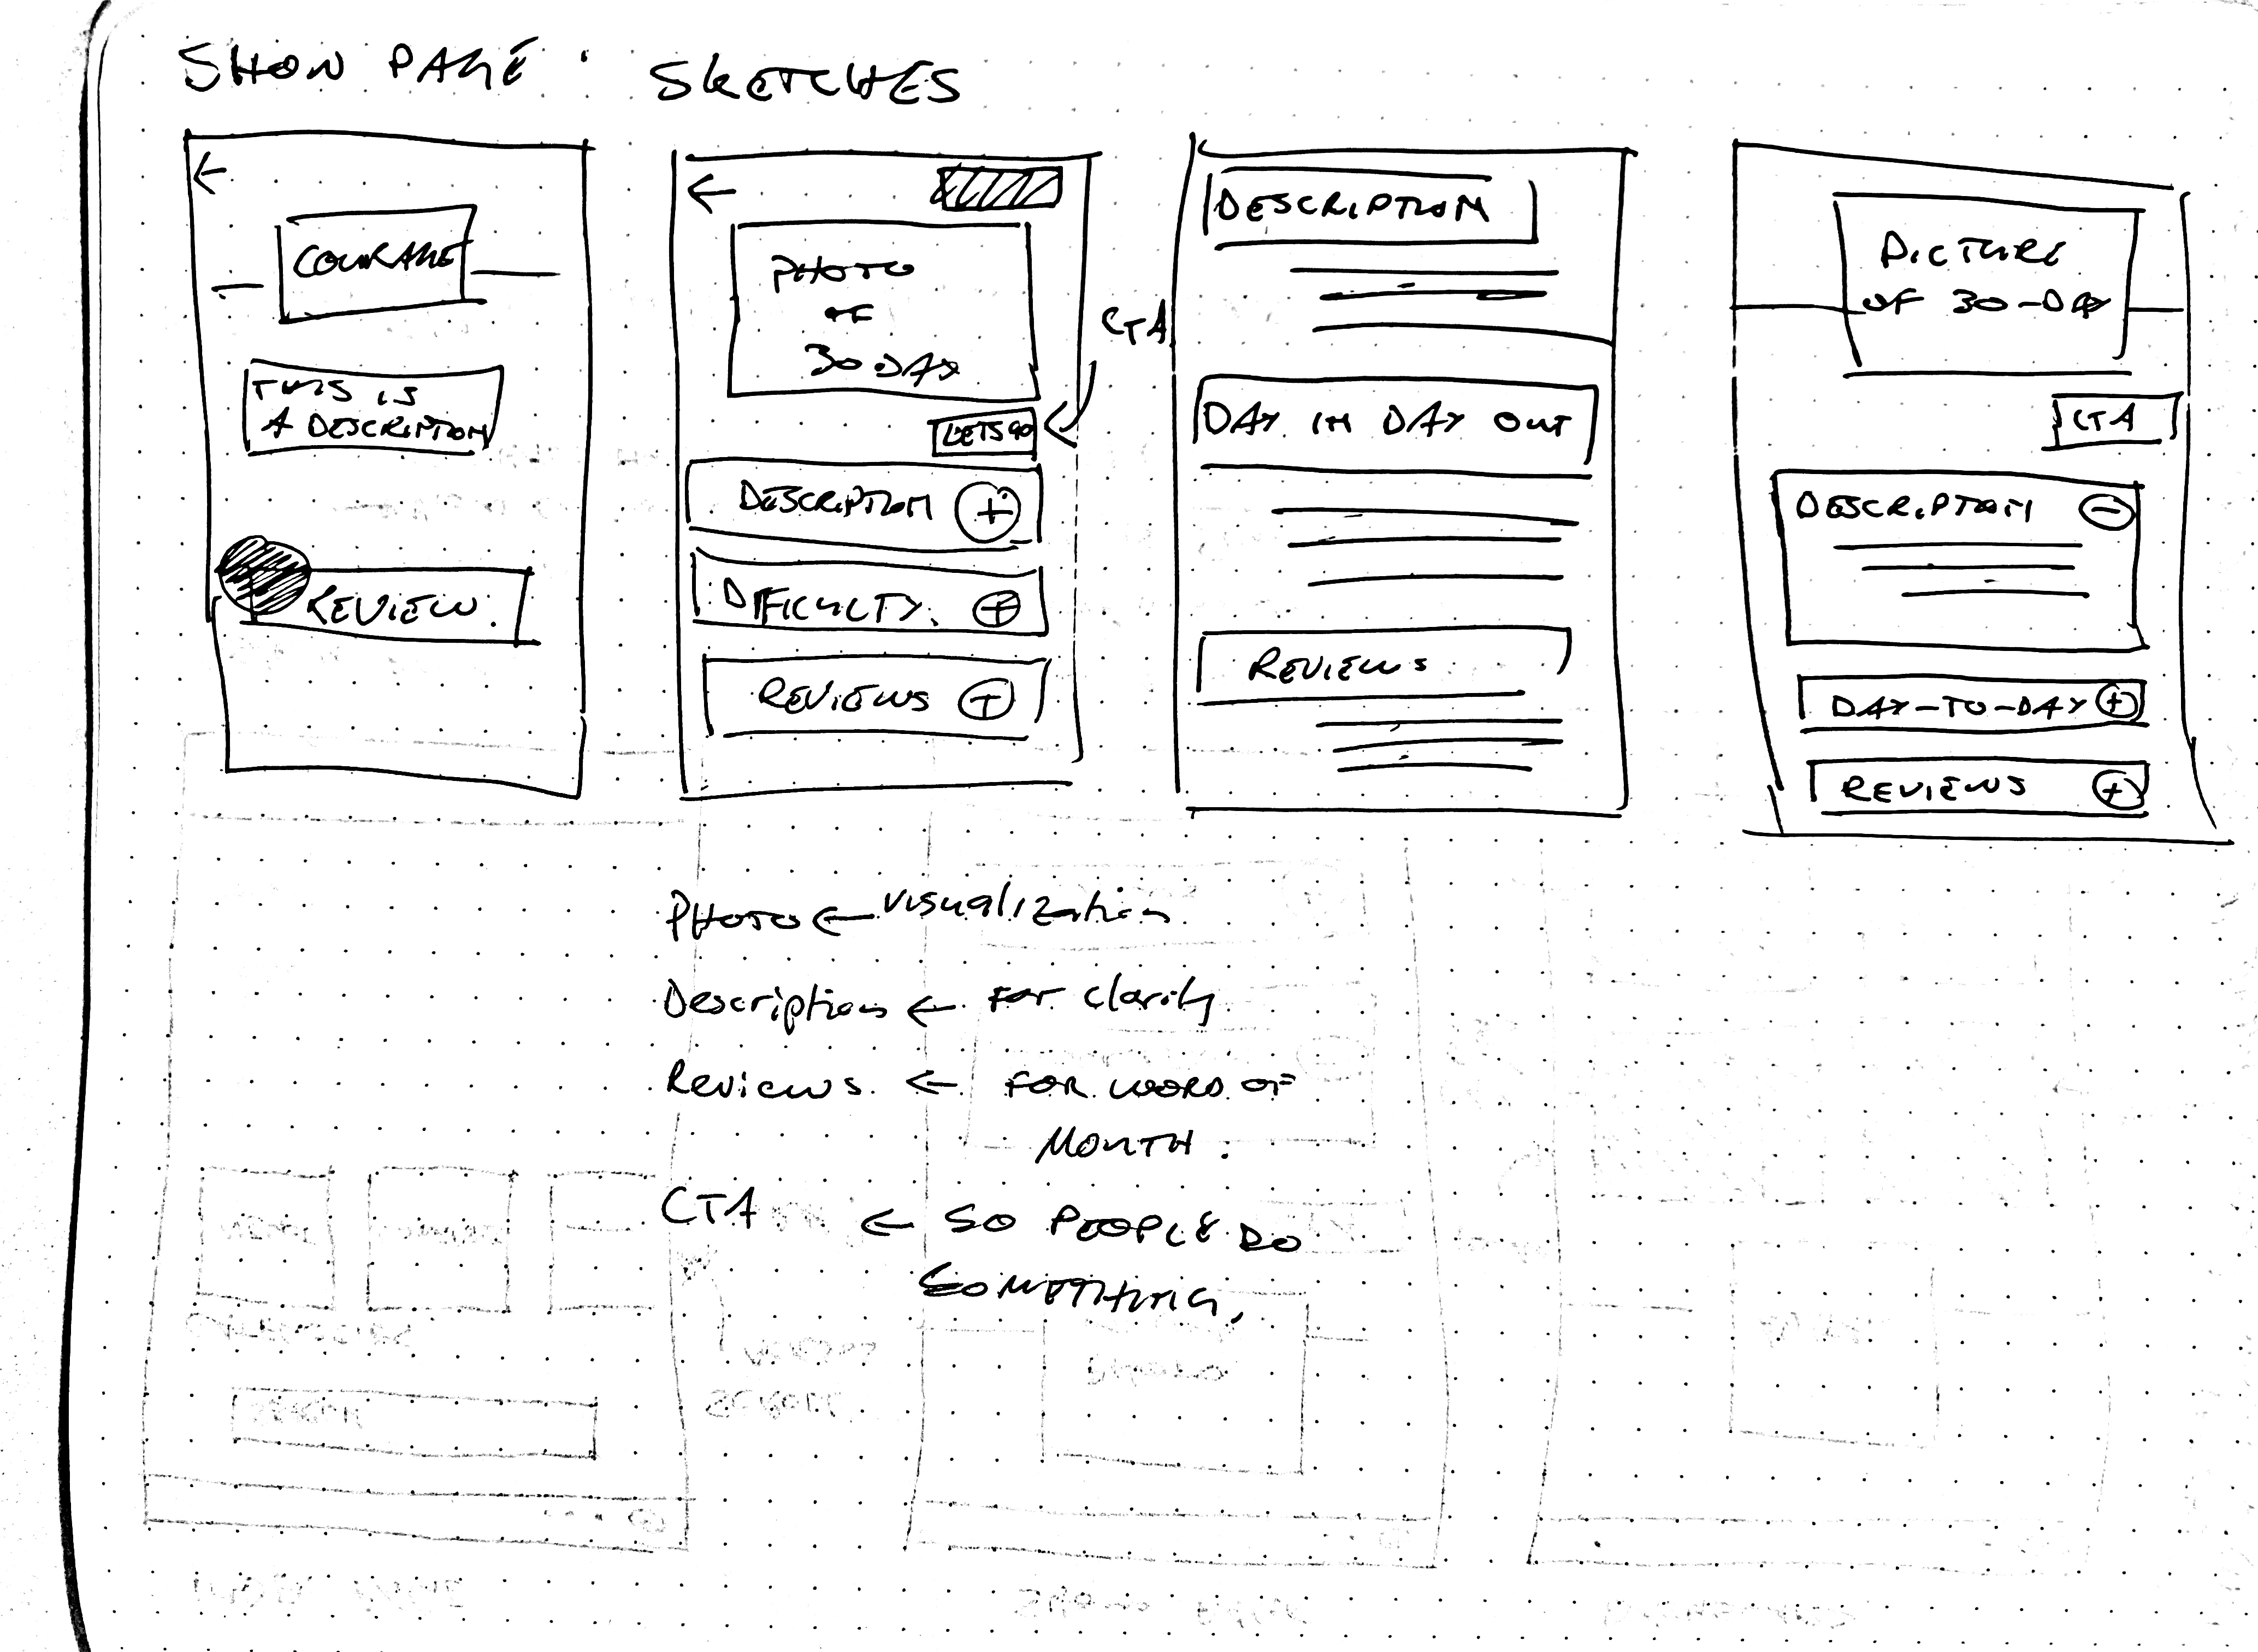 SHOW PAGE : SKETCHES
COURAGE
THIS IS
A DESCRIPTION
REVIEW.
PHOTO
OF
30-DAY
CTA
LETS GO
DESCRIPTION +
DIFFICULTY. +
REVIEWS +
DESCRIPTION
DAY IN DAY OUT
REVIEWS
PICTURE
OF 30-DAY
CTA
DESCRIPTION -
DAY-TO-DAY +
REVIEWS +
PHOTO ← visualization
Description ← For clarity
Reviews. ← FOR WORD OF
MOUTH.
CTA ← SO PEOPLE DO
SOMETHING.